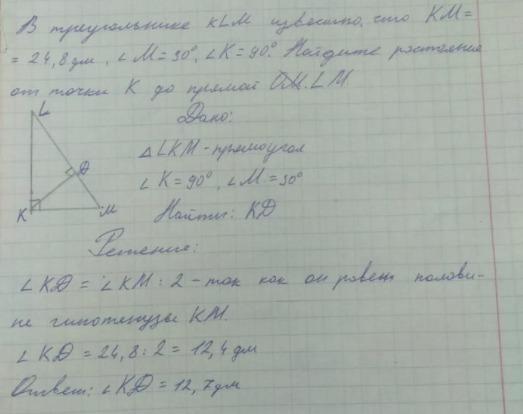 В треугольнике KLM известно, что KM=
= 24,8 дм, ∠M=30°, ∠K=90°. Найдите растояние
от точки K до прямой LM.
L
Дано:
△LKM - прямоугол
D
∠K=90°, ∠M=30°
K
M
Найти: KD
Решение:
∠KD = ∠KM : 2 - так как он равен полови-
не гипотенузы KM.
∠KD = 24,8 : 2 = 12,4 дм
Ответ: ∠KD = 12,7 дм